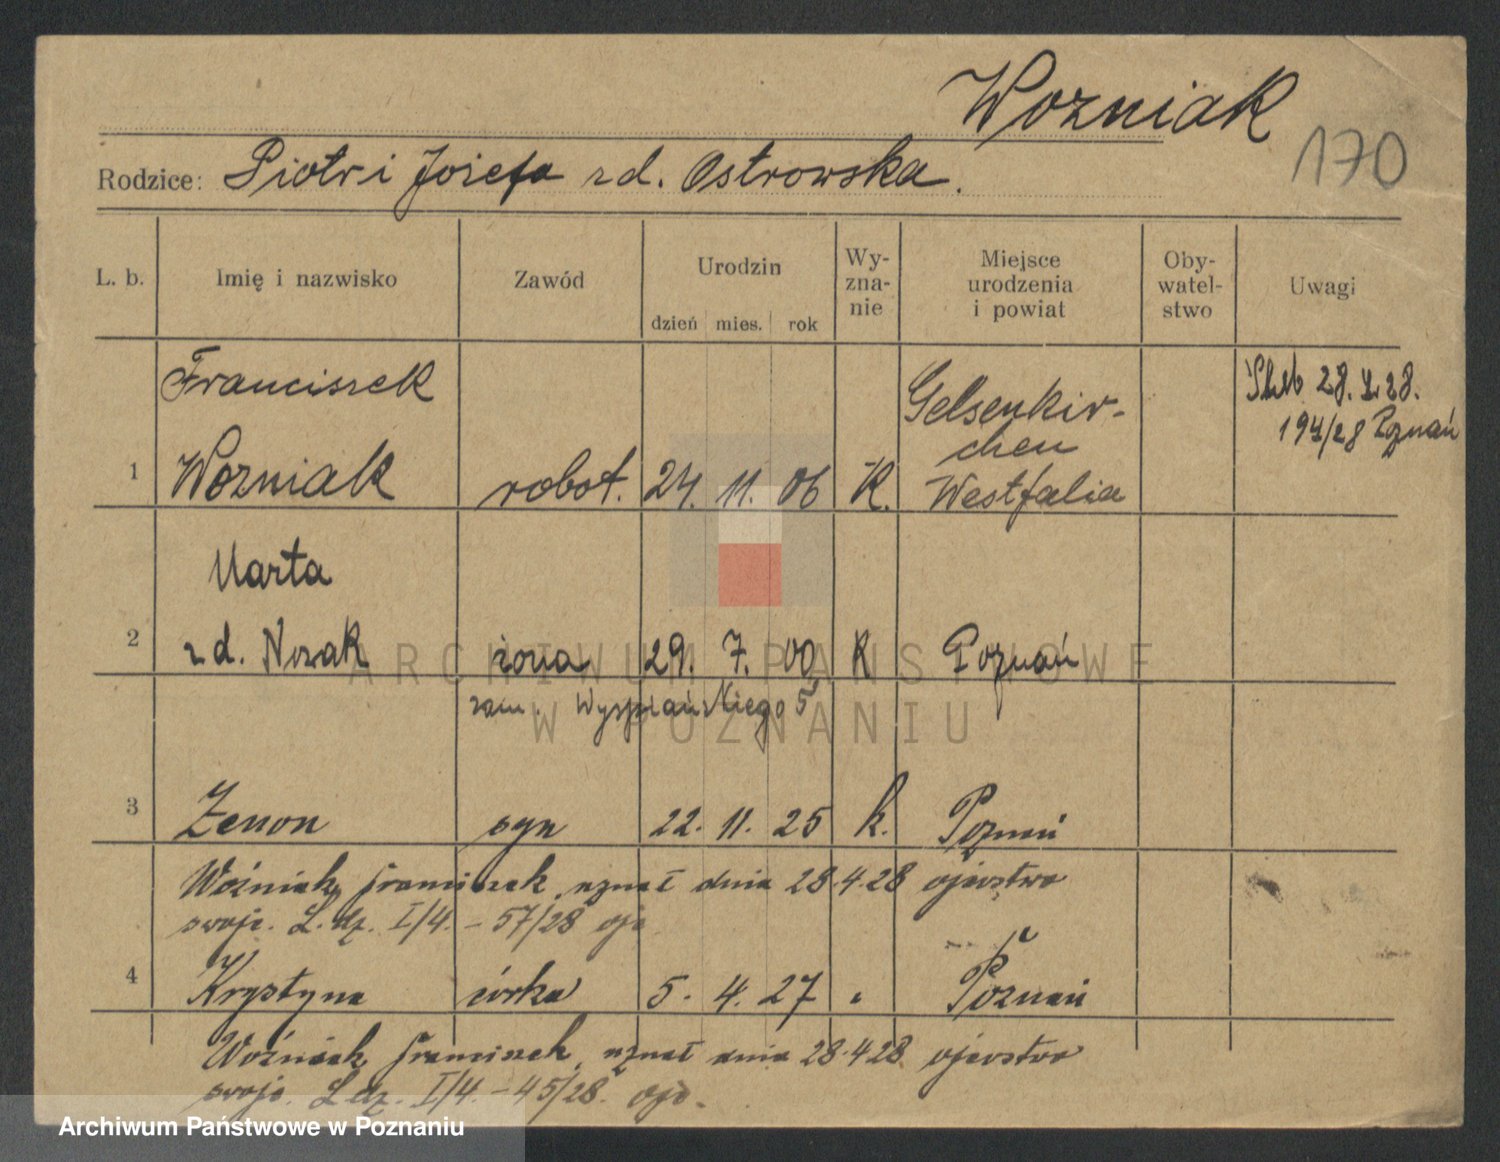 Wozniak
170
Rodzice: Piotr i Józefa zd. Ostrowska.
L. b. Imię i nazwisko Zawód Urodzin dzień mies. rok Wy-zna-nie Miejsce urodzenia i powiat Oby-watel-stwo Uwagi
Franciszek Gelsenkir- 28. 28.
chen 194/28 Poznań
1 Wozniak robot. 24. 11. 06 K. Westfalia
Marta
2 zd. Nowak żona 29. 7. 00 K Poznań
zam. Wyspiańskiego 5
3 Zenon syn 22. 11. 25 k. Poznań
Woźniak Franciszek uznał dnia 28.4.28 ojcostwo
swoje. L. dz. I/4. - 57/28
4 Krystyna córka 5. 4. 27 " Poznań
Woźniak Franciszek uznał dnia 28.4.28 ojcostwo
swoje. L. dz. I/4. - 45/28.
ARCHIWUM PAŃSTWOWE
W POZNANIU
Archiwum Państwowe w Poznaniu